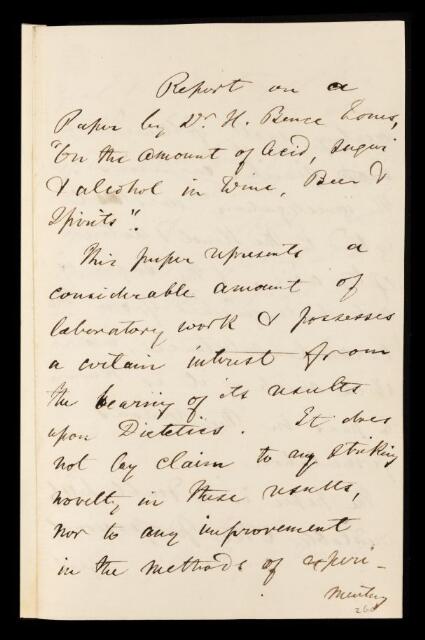 Report on a
Paper by Dr. H. Bence Jones,
"On the amount of Acid, sugar
& alcohol in Wine, Beer &
Spirits".
This paper represents a
considerable amount of
laboratory work & possesses
a certain interest from
the bearing of its results
upon Dietetics. It does
not lay claim to any striking
novelty in these results,
nor to any improvement
in the methods of experi-
menting
260